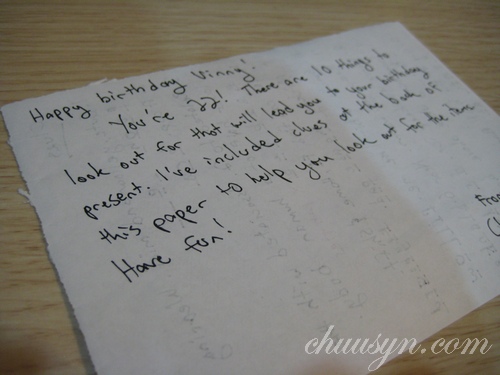 Happy birthday Vinny!
You're 22! There are 10 things to
look out for that will lead you to your birthday
present. I've included clues at the back of
this paper to help you look out for the items.
Have fun!
From
chuusyn.com